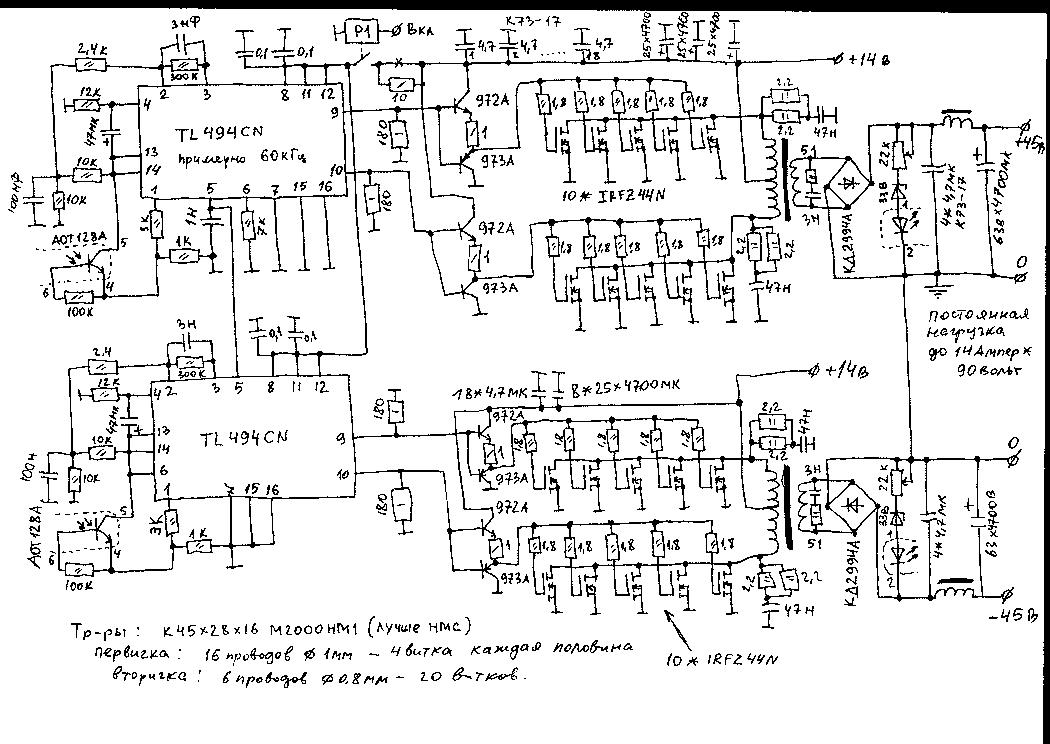 3НФ
2,4К
300К
2
3
12К
4
47МК
+
TL494CN
примерно 60кГц
13
14
10К
10К
100НФ
1
5
6
7
15
16
8
11
12
9
10
0,1
0,1
P1
Вкл
×
10
180
180
АОТ128А
5
4
6
100К
3К
1К
1Н
7К
К73-17
4,7
1
4,7
2
......
4,7
18
25×4700
25×4700
25×4700
+14В
972А
1
973А
1,8
1,8
1,8
1,8
1,8
10* IRFZ44N
972А
1
973А
1,8
1,8
1,8
1,8
1,8
2,2
2,2
47Н
2,2
2,2
47Н
51
3Н
КД2994А
22К
33В
1
2
4*4,7МК
К73-17
63В×4700МК
+45В
0
постоянная
нагрузка
до 14Ампер ж
90вольт
2,4
3Н
300К
2
3
5
8
11
12
0,1
0,1
12К
4
47МК
+
TL494CN
13
14
6
10К
10К
100Н
1
7
15
16
9
10
180
180
АОТ128А
5
4
6
100К
3К
1К
18×4,7МК
8*25×4700МК
+14В
972А
1
973А
1,8
1,8
1,8
1,8
1,8
972А
1
973А
1,8
1,8
1,8
1,8
1,8
10* IRFZ44N
2,2
2,2
47Н
2,2
2,2
47Н
3Н
51
КД2994А
22К
33В
1
2
4*4,7МК
63×4700В
0
-45В
Тр-ры: К45×28×16 М2000НМ1 (лучше НМС)
первичка: 16 проводов Ø 1мм – 4 витка каждая половина
вторичка: 6 проводов Ø0,8мм – 20 витков.